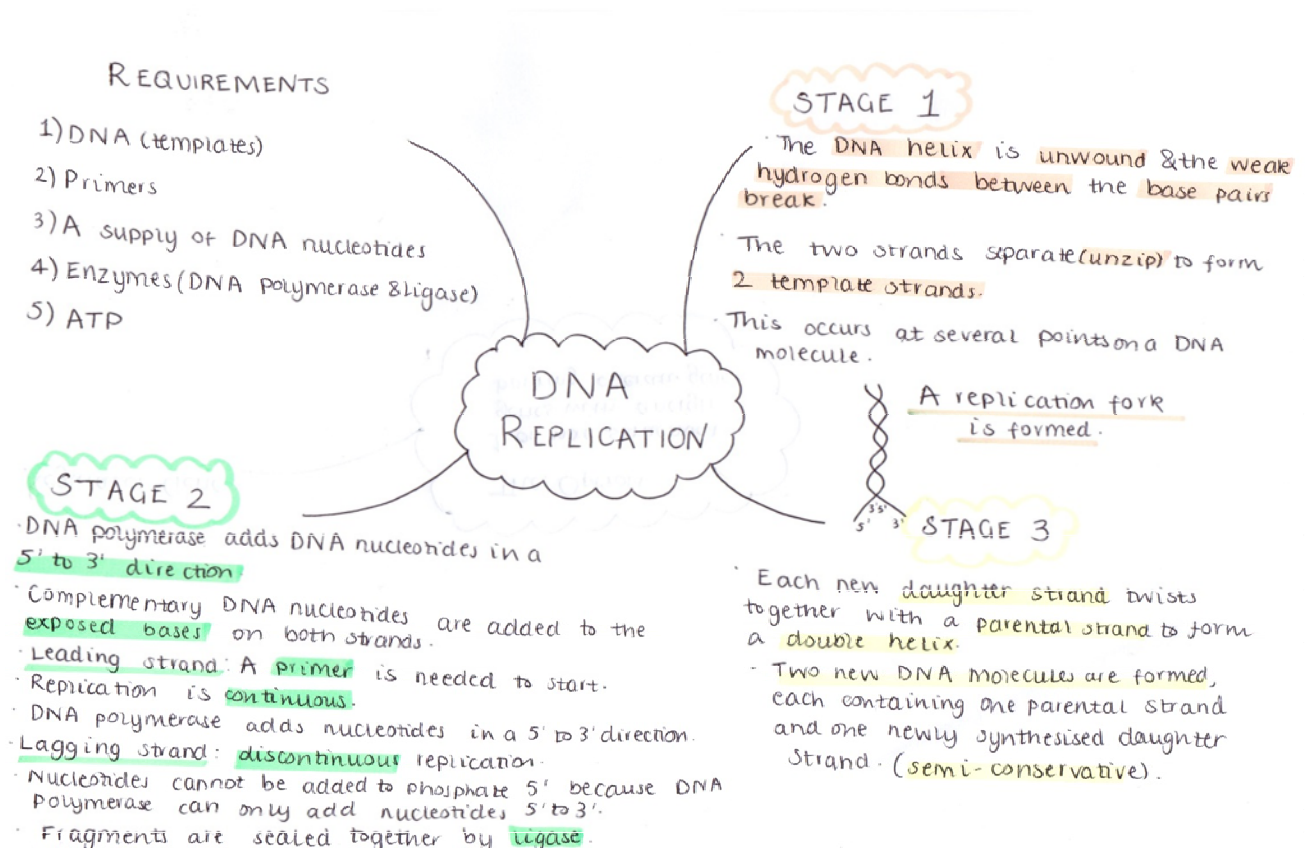 REQUIREMENTS
1) DNA (templates)
2) Primers
3) A supply of DNA nucleotides
4) Enzymes (DNA polymerase & Ligase)
5) ATP
STAGE 1
· The DNA helix is unwound & the weak
hydrogen bonds between the base pairs
break.
· The two strands separate (unzip) to form
2 template strands.
· This occurs at several points on a DNA
molecule.
A replication fork
is formed.
5' 3' 5' 3'
DNA
REPLICATION
STAGE 2
· DNA polymerase adds DNA nucleotides in a
5' to 3' direction
· Complementary DNA nucleotides are added to the
exposed bases on both strands.
· Leading strand: A primer is needed to start.
· Replication is continuous.
· DNA polymerase adds nucleotides in a 5' to 3' direction.
· Lagging strand: discontinuous replication.
· Nucleotides cannot be added to phosphate 5' because DNA
polymerase can only add nucleotides 5' to 3'.
· Fragments are sealed together by ligase.
STAGE 3
· Each new daughter strand twists
together with a parental strand to form
a double helix.
· Two new DNA molecules are formed,
each containing one parental strand
and one newly synthesised daughter
strand. (semi-conservative).